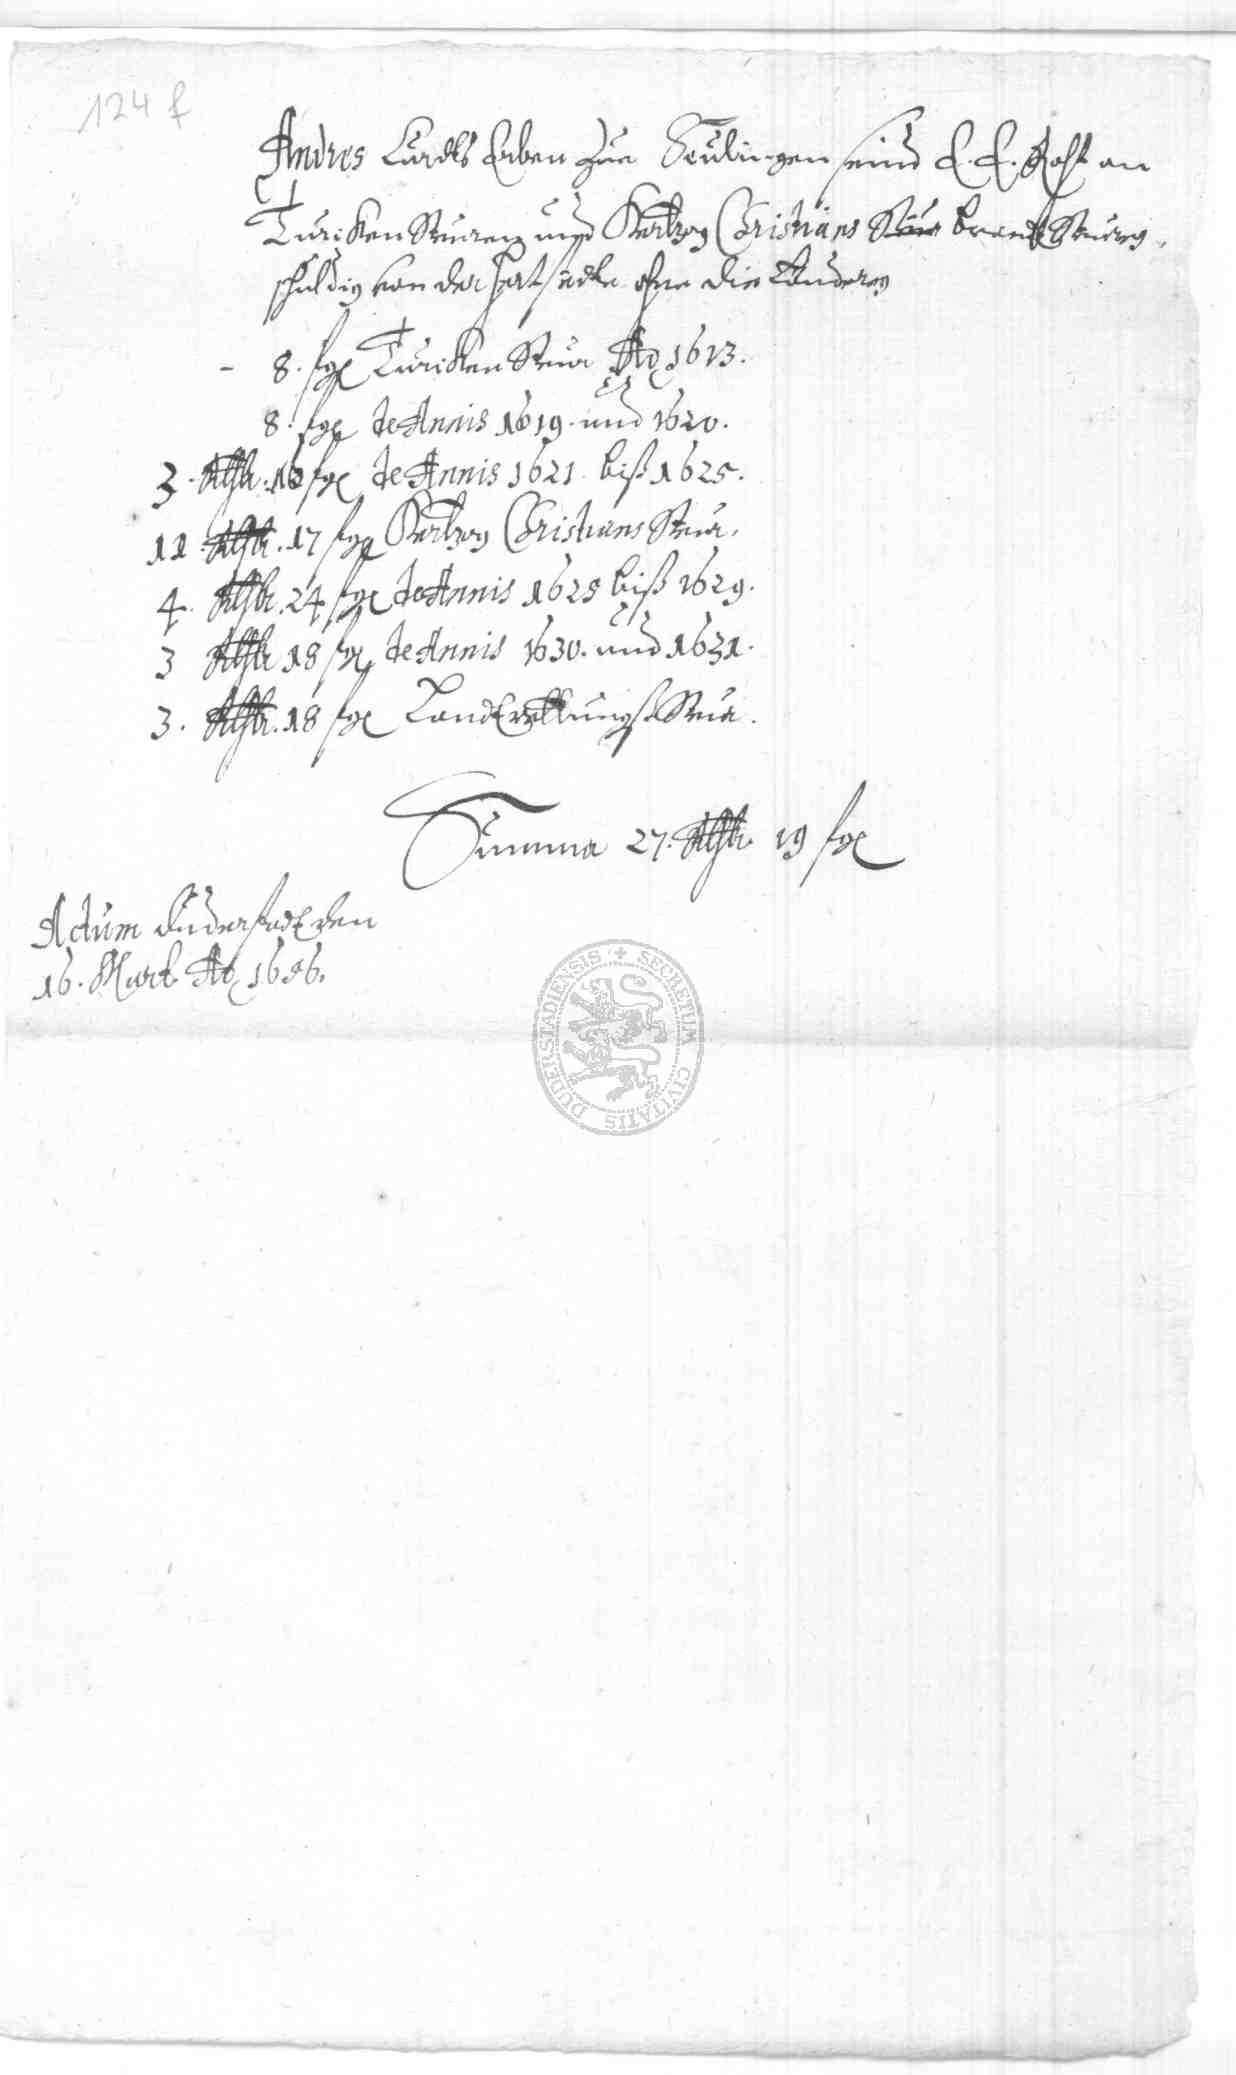 124 f
Andres Curdts Erben zue Seulingen seind E. E. Raht an
Turcken Steuren und Hertzog Christians Steur brandt Steuren
schuldig von der hort ohne die Länderey
- 8. sgl Turcken Steur Ao 1613.
8. sgl de Annis 1619. und 1620.
3. Rthlr. 16 sgl de Annis 1621. biß 1625.
11. Rthlr. 17 sgl Hertzog Christians Steur.
4. Rthlr. 24 sgl de Annis 1625 biß 1629.
3 Rthlr 18 sgl de Annis 1630. und 1631.
3. Rthlr. 18 sgl LandtrettungsSteur.
Summa 27. Rthlr. 19 sgl
Actum Duderstadt den
16. Mart. Ao 1656.
SECRETUM CIVITATIS DUDERSTADIENSIS